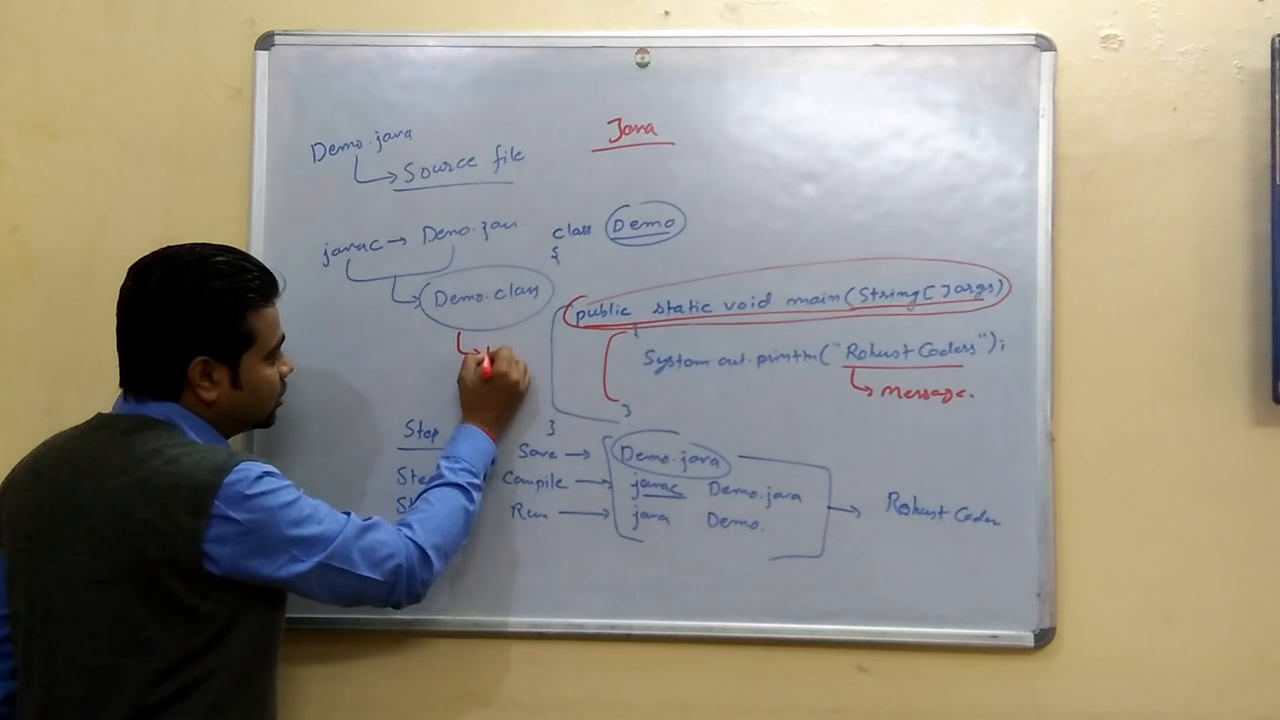 Java
Demo.java
Source file
javac → Demo.java
Demo.class
class Demo
{
public static void main(String[]args)
{
System.out.println("Robust Coders");
message.
}
}
Step
Save → Demo.java
Compile → javac Demo.java
Run → java Demo.
→ Robust Coder